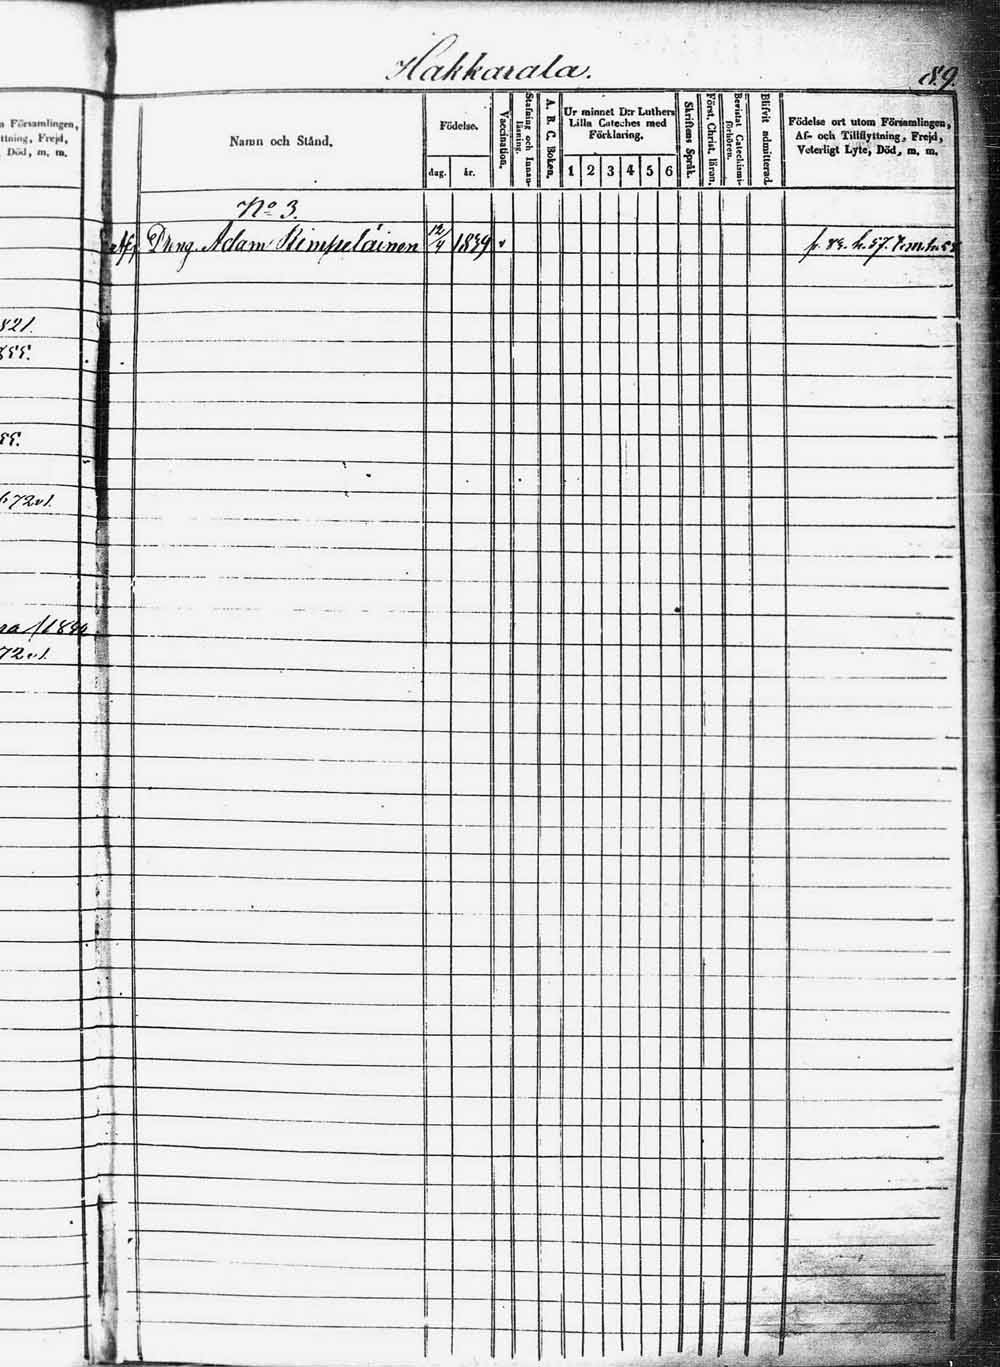 Hakkarala.
89.
n Församlingen,
ttning, Frejd,
Död, m. m.
Namn och Stånd.
Födelse.
dag.
år.
Vaccination.
Stafning och Innanläsning.
A. B. C. Boken.
Ur minnet D:r Luthers
Lilla Cateches med
Förklaring.
1 2 3 4 5 6
Skriftens Språk.
Först. Christ. läran.
Bevistat Catechismiförhören.
Blifvit admitterad.
Födelse ort utom Församlingen,
Af- och Tillflyttning, Frejd,
Veterligt Lyte, Död, m. m.
No 3.
Dreng Adam Kimpeläinen 12/4 1839 v
821.
72 vl.
72 vl.